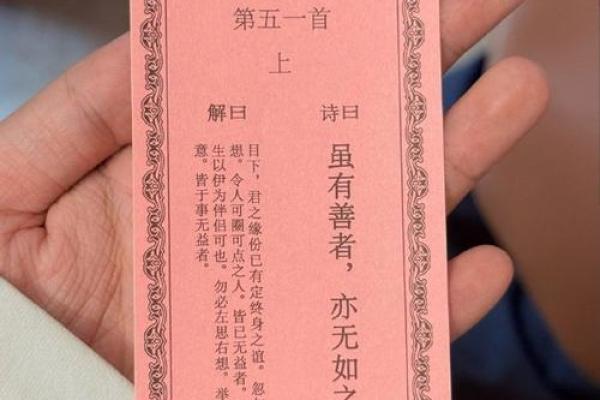 第五一首
上
诗曰
虽有善者，亦无如之
解曰
目下，君之缘份已有定终身之谊。忽
想。令人可圈可点之人。皆已无益者。
生以伊为伴侣可也。勿必左思右想。举
意。皆于事无益者。